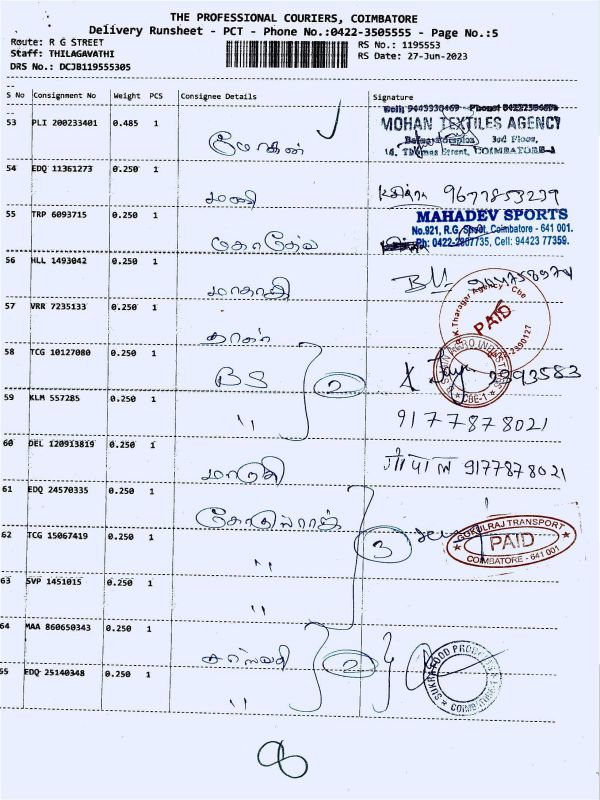 THE PROFESSIONAL COURIERS, COIMBATORE
Delivery Runsheet - PCT - Phone No.:0422-3505555 - Page No.:5
Route: R G STREET
RS No.: 1195553
Staff: THILAGAVATHI
RS Date: 27-Jun-2023
DRS No.: DCJB119555305
S No Consignment No Weight PCS Consignee Details Signature
53 PLI 200233401 0.485 1 மோகன்
MOHAN TEXTILES AGENCY
3rd Floor,
COIMBATORE-1
54 EDQ 11361273 0.250 1 மணி 9677853239
55 TRP 6093715 0.250 1
MAHADEV SPORTS
No.921, R.G. Street, Coimbatore - 641 001.
Ph: 0422-2607735, Cell: 94423 77359.
56 HLL 1493042 0.250 1
57 VRR 7235133 0.250 1
K.Tharagar Agency Cbe
PAID
0422-2390127
58 TCG 10127080 0.250 1 BS 2
CBE-1
59 KLM 557285 0.250 1 " 9177878021
60 DEL 120913819 0.250 1 மாருதி गोपाल 9177878021
61 EDQ 24570335 0.250 1 கோகுல்ராஜ்
62 TCG 15067419 0.250 1 " 3
GOKULRAJ TRANSPORT
PAID
COIMBATORE - 641 001
63 SVP 1451015 0.250 1 "
64 MAA 860650343 0.250 1 2
SUKRA FOOD PRODUCTS
COIMBATORE
65 EDQ 25140348 0.250 1 "
8